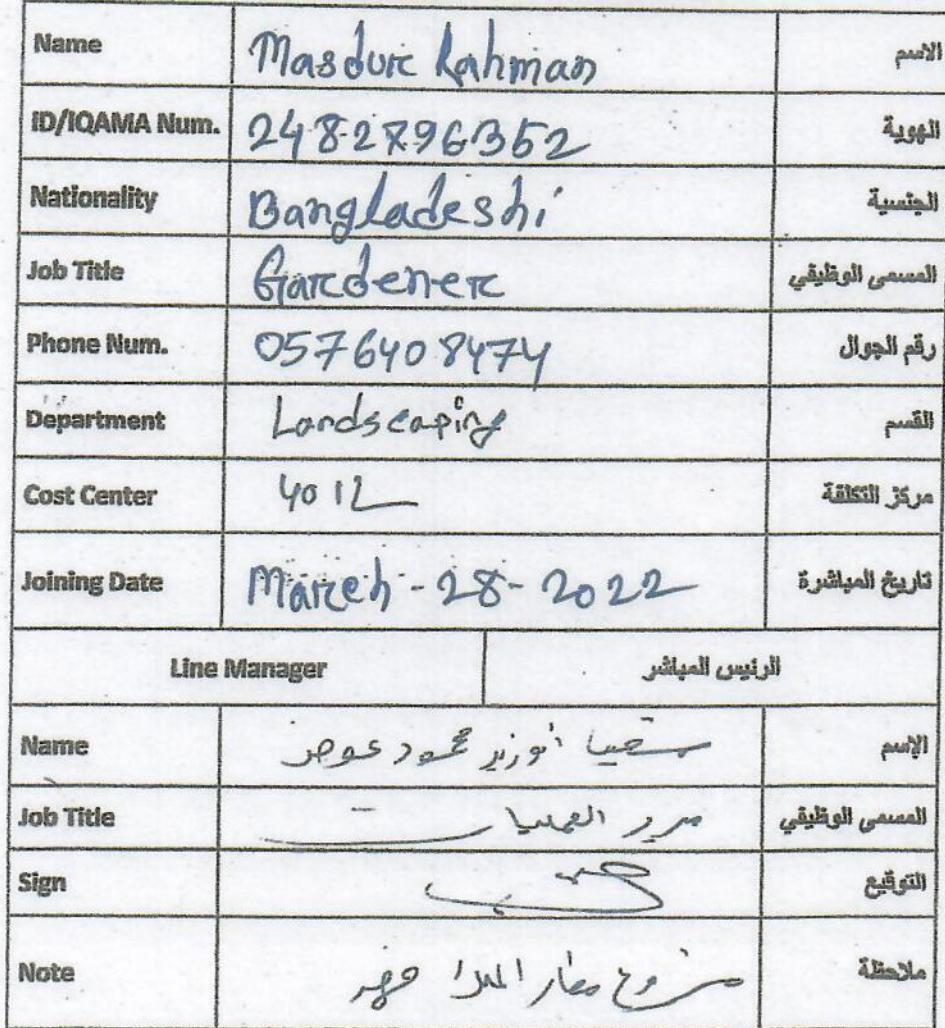 Name Masdur Rahman الاسم
ID/IQAMA Num. 2482796352 الهوية
Nationality Bangladeshi الجنسية
Job Title Gardener المسمى الوظيفي
Phone Num. 0576408474 رقم الجوال
Department Landscaping القسم
Cost Center 4012 مركز التكلفة
Joining Date March-28-2022 تاريخ المباشرة
Line Manager الرئيس المباشر
Name محمود عوض الإسم
Job Title مدير العمليات المسمى الوظيفي
Sign التوقيع
Note مشروع مطار ملاحظة